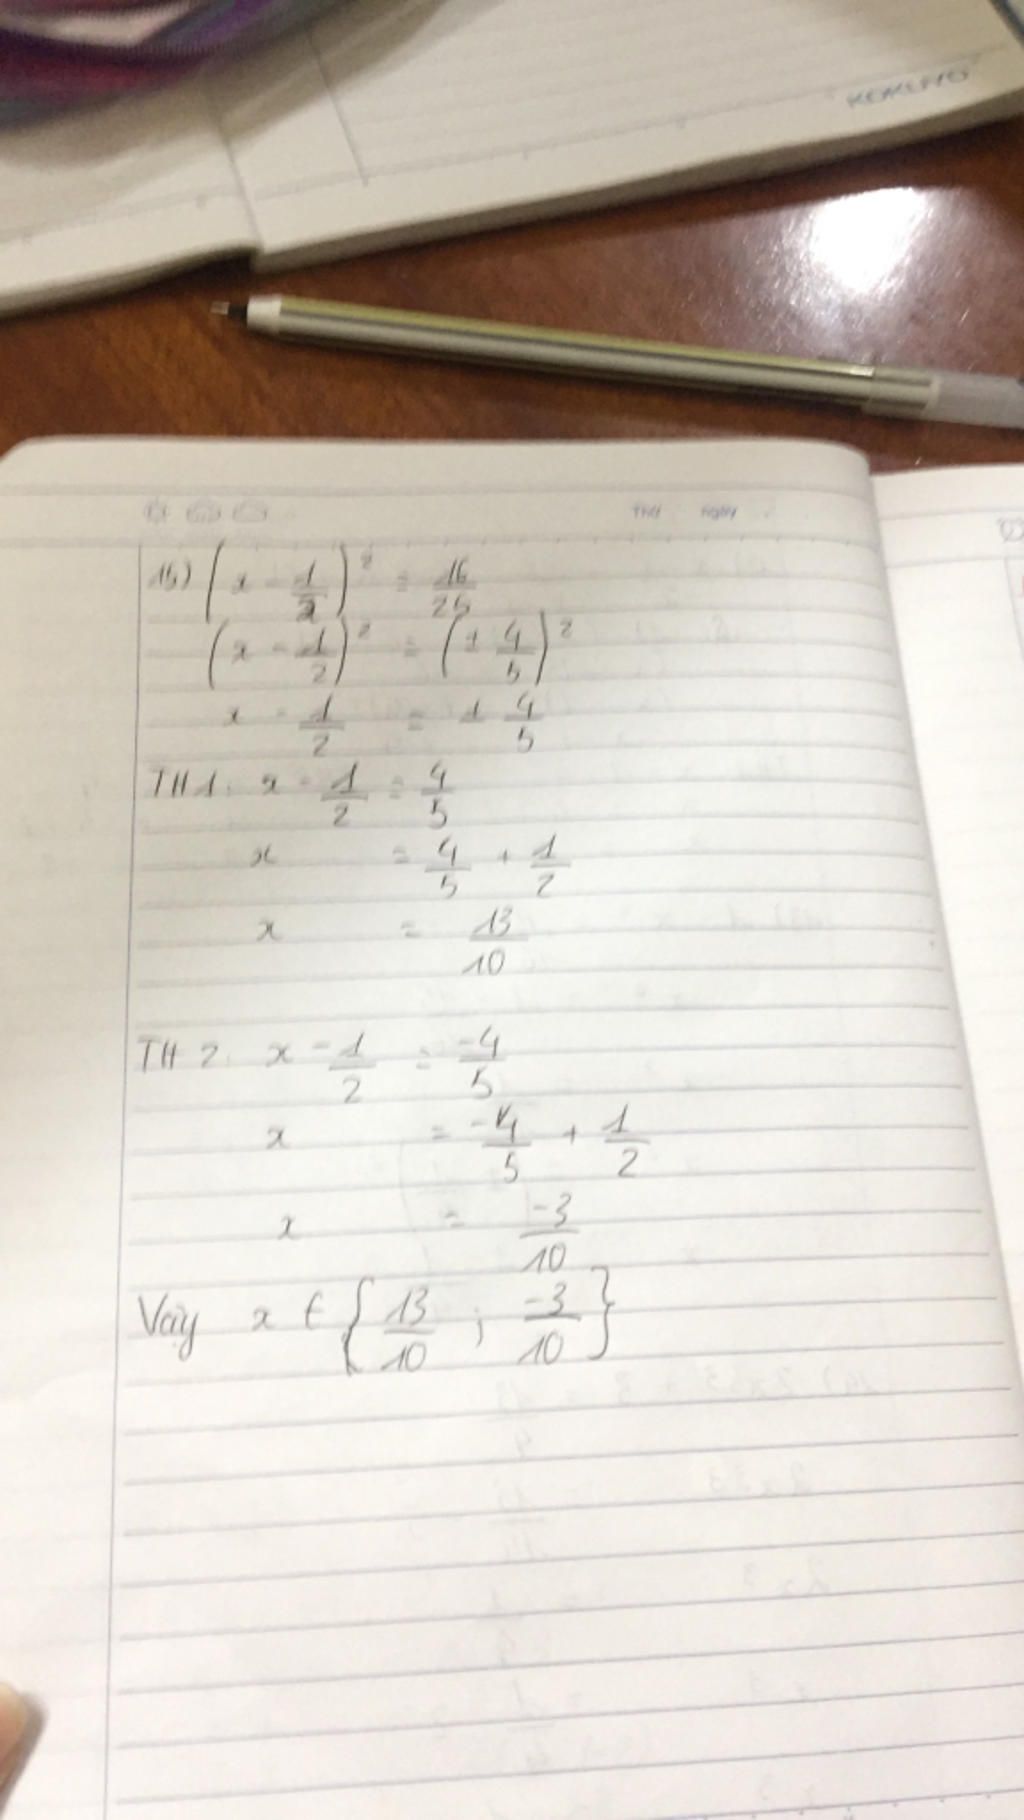 KOKUYO
Thứ Ngày
15) (x - 1/2)² = 16/25
(x - 1/2)² = (± 4/5)²
x - 1/2 = ± 4/5
TH1: x - 1/2 = 4/5
x = 4/5 + 1/2
x = 13/10
TH 2: x - 1/2 = -4/5
x = -4/5 + 1/2
x = -3/10
Vậy x ∈ {13/10 ; -3/10}